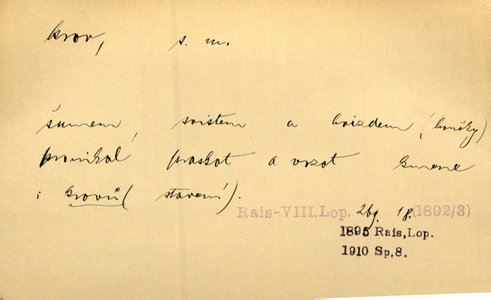 krov, s. m.
šumem, svistem a hvizdem,
pronikal praskot a vrzot kmene
i krovů (stavení).
Rais-VIII.Lop. 269. 18. (1892/3)
1895 Rais,Lop.
1910 Sp,8.